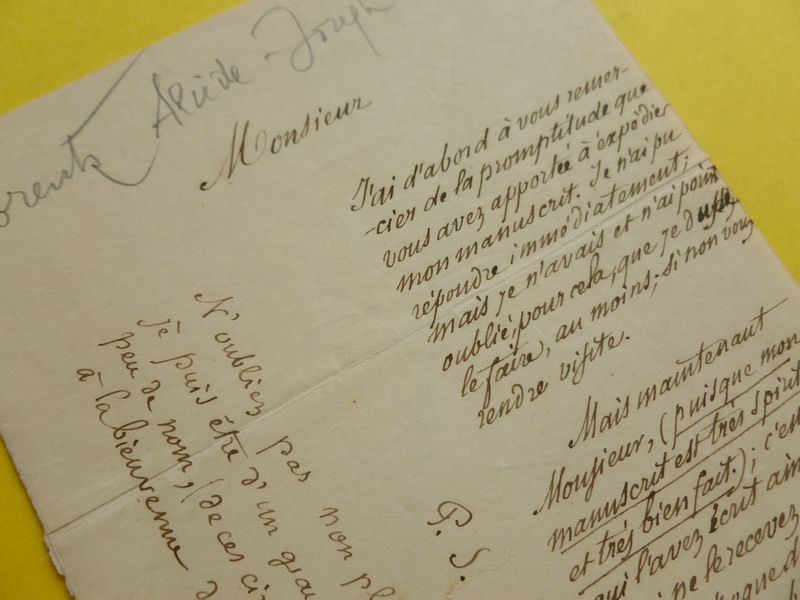 Monsieur
J'ai d'abord à vous remer-
-cier de la promptitude que
vous avez apportée à expédier
mon manuscrit. Je n'ai pu
répondre immédiatement;
mais je n'avais et n'ai point
oublié, pour cela, que je dusse
le faire, au moins; si non vous
rendre visite.
Mais maintenant
Monsieur, (puisque mon
manuscrit est très spirit
et très bien fait.); c'en
qui l'avez écrit ain
ne le recevez
P. S.
N'oubliez pas non pl
je puis être d'un gra
peu de nom, (de ces ci
à la bienvenue d